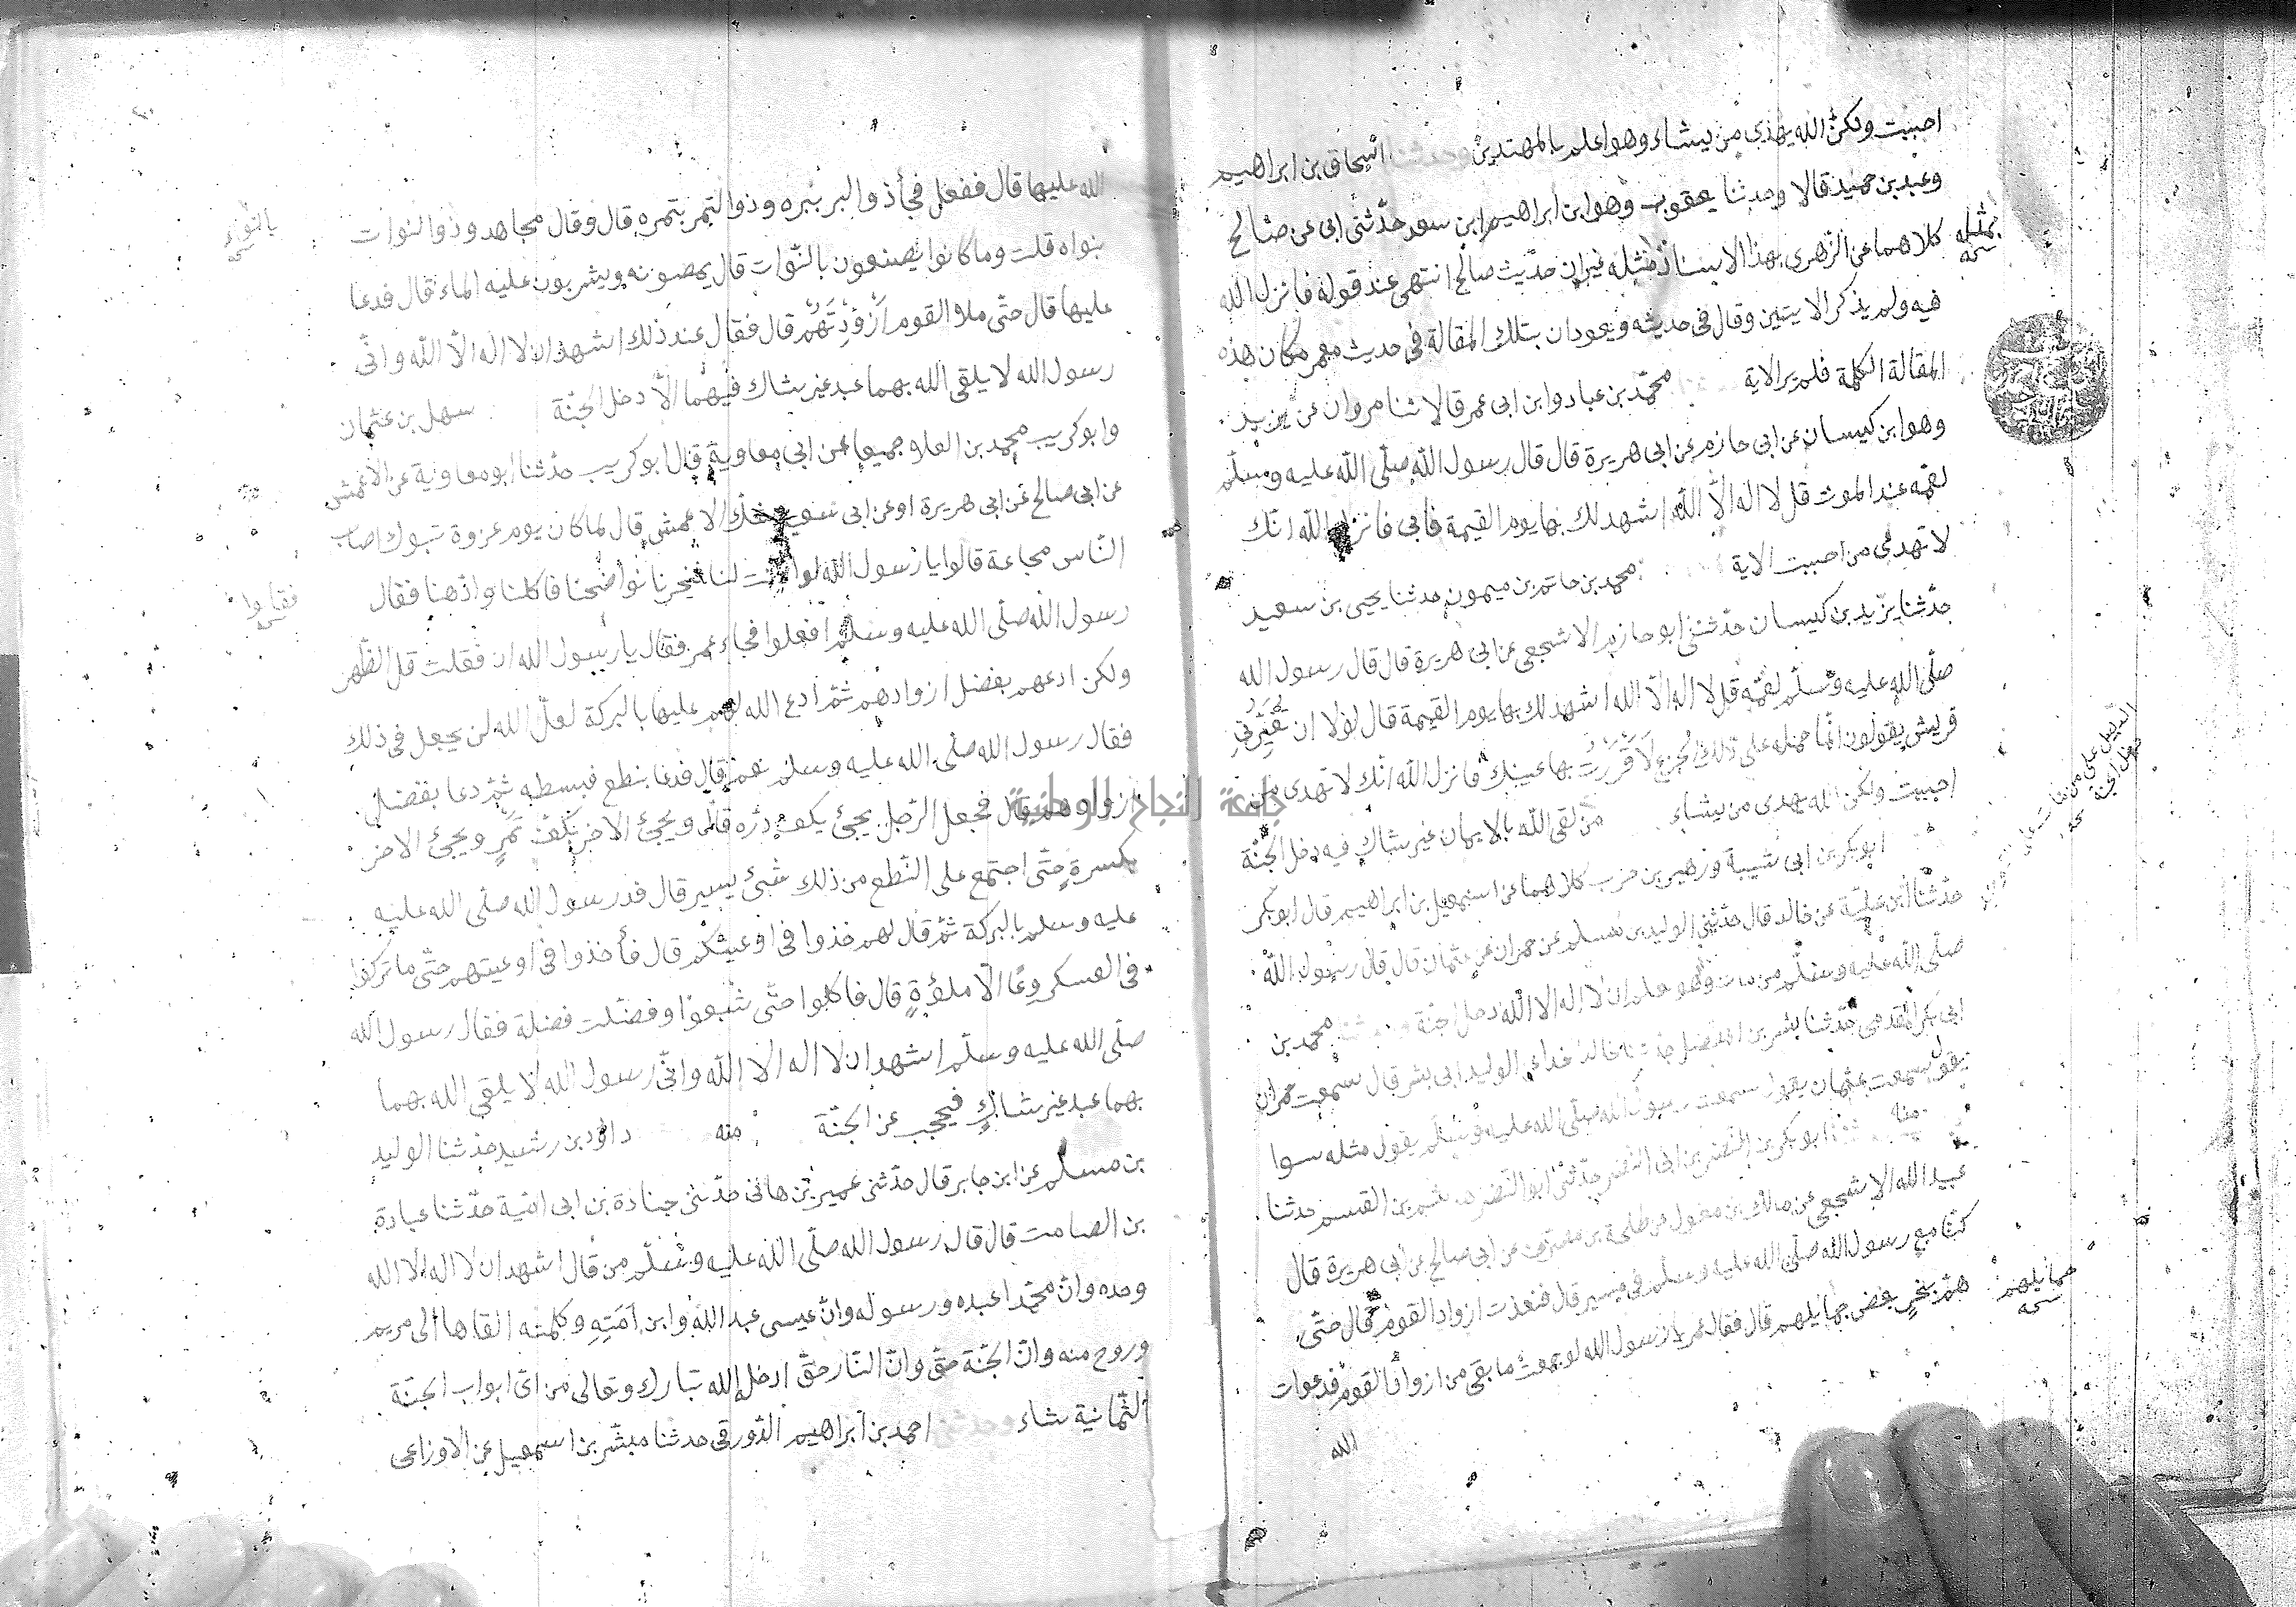 احببت ولكن الله يهدي من يشاء وهو اعلم بالمهتدين وحدثنا اسحاق بن ابراهيم
وعبد بن حميد قالا وحدثنا يعقوب وهو ابن ابراهيم ابن سعد حدثني ابي عن صالح
كلاهما عن الزهري بهذا الاسناد مثله غير ان حديث صالح انتهى عند قوله فانزل الله
بمثله
فيه ولم يذكر الايتين وقال في حديثه ويعودان بتلك المقالة في حديث معمر مكان هذه
المقالة الكلمة فلم ير الاية محمد بن عباد وابن ابي عمر قالا ثنا مروان عن يزيد
وهو ابن كيسان عن ابي حازم عن ابي هريرة قال قال رسول الله صلى الله عليه وسلم
لعمه عند الموت قل لا اله الا الله اشهد لك بها يوم القيمة فابى فانزل الله انك
لا تهدي من احببت الاية محمد بن حاتم بن ميمون حدثنا يحيى بن سعيد
حدثنا يزيد بن كيسان حدثني ابو حازم الاشجعي عن ابي هريرة قال قال رسول الله
صلى الله عليه وسلم لعمه قل لا اله الا الله اشهد لك بها يوم القيمة قال لولا ان تعيرني
قريش يقولون انما حمله على ذلك الجزع لاقررت بها عينك فانزل الله انك لا تهدي من
احببت ولكن الله يهدي من يشاء من لقي الله بالايمان غير شاك فيه دخل الجنة
ابو بكر بن ابي شيبة وزهير بن حرب كلاهما عن اسمعيل بن ابراهيم قال ابو بكر
حدثنا ابن علية عن خالد قال حدثني الوليد بن مسلم عن حمران عن عثمان قال قال رسول الله
صلى الله عليه وسلم من مات وهو يعلم ان لا اله الا الله دخل الجنة وحدثنا محمد بن
ابي بكر المقدمي حدثنا بشر بن المفضل حدثنا خالد الحذاء عن الوليد ابي بشر قال سمعت حمران
يقول سمعت عثمان يقول سمعت رسول الله صلى الله عليه وسلم يقول مثله سوا
منه ثنا ابو بكر بن النضر بن ابي النضر حدثني ابو النضر هاشم بن القسم حدثنا
عبيد الله الاشجعي عن مالك بن مغول عن طلحة بن مصرف عن ابي صالح عن ابي هريرة قال
كنا مع رسول الله صلى الله عليه وسلم في مسير قال فنفدت ازواد القوم قال حتى
هم بنحر بعض حمايلهم قال فقال عمر يا رسول الله لو جمعت ما بقي من ازواد القوم فدعوت
حمايلهم
الله
الله عليها قال ففعل فجأ ذو البر ببره وذو التمر بتمره قال وقال مجاهد وذو النوات
بالنوى
بنواه قلت وما كانوا يصنعون بالنوات قال يمصونه ويشربون عليه الماء قال فدعا
عليها قال حتى ملا القوم ازودتهم قال فقال عند ذلك اشهد ان لا اله الا الله واني
رسول الله لا يلقى الله بهما عبد غير شاك فيهما الا دخل الجنة سهل بن عثمان
وابو كريب محمد بن العلا جميعا عن ابي معاوية قال ابو كريب حدثنا ابو معاوية عن الاعمش
عن ابي صالح عن ابي هريرة او عن ابي سعيد شك الاعمش قال لما كان يوم غزوة تبوك اصاب
الناس مجاعة قالوا يا رسول الله لو اذنت لنا فنحرنا نواضحنا فاكلنا وادهنا فقال
فقالوا
رسول الله صلى الله عليه وسلم افعلوا فجاء عمر فقال يا رسول الله ان فعلت قل الظهر
ولكن ادعهم بفضل ازوادهم ثم ادع الله لهم عليها بالبركة لعل الله ان يجعل في ذلك
فقال رسول الله صلى الله عليه وسلم نعم قال فدعا بنطع فبسطه ثم دعا بفضل
ازوادهم قال فجعل الرجل يجئ بكف ذره قال ويجئ الاخر بكف تمر ويجئ الاخر
بكسرة حتى اجتمع على النطع من ذلك شئ يسير قال فدر رسول الله صلى الله عليه
عليه وسلم بالبركة ثم قال لهم خذوا في اوعيتكم قال فأخذوا في اوعيتهم حتى ما تركوا
في العسكر وعا الا ملؤه قال فاكلوا حتى شبعوا وفضلت فضلة فقال رسول الله
صلى الله عليه وسلم اشهد ان لا اله الا الله واني رسول الله لا يلقى الله بهما
بهما عبد غير شاك فيحجب عن الجنة منه داود بن رشيد حدثنا الوليد
بن مسلم عن ابن جابر قال حدثني عمير بن هاني حدثني جنادة بن ابي امية حدثنا عبادة
بن الصامت قال قال رسول الله صلى الله عليه وسلم من قال اشهد ان لا اله الا الله
وحده وان محمدا عبده ورسوله وان عيسى عبد الله وابن امته وكلمته القاها الى مريم
وروح منه وان الجنة حق وان النار حق ادخله الله تبارك وتعالى من اي ابواب الجنة
الثمانية شاء وحدثني احمد بن ابراهيم الدورقي حدثنا مبشر بن اسمعيل عن الاوزاعي
جامعة النجاح الوطنية